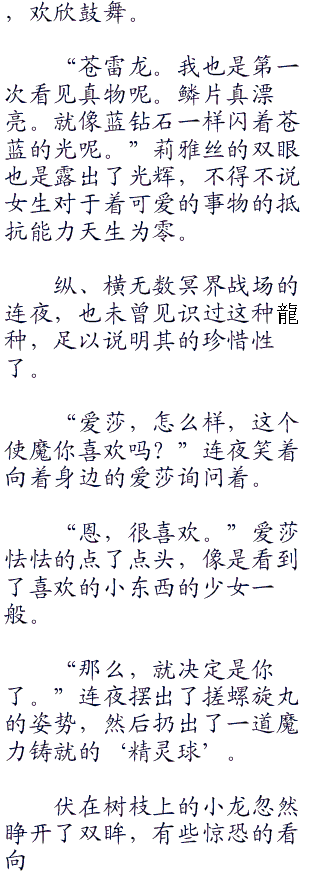 ，欢欣鼓舞。
“苍雷龙。我也是第一
次看见真物呢。鳞片真漂
亮。就像蓝钻石一样闪着苍
蓝的光呢。”莉雅丝的双眼
也是露出了光辉，不得不说
女生对于着可爱的事物的抵
抗能力天生为零。
纵、横无数冥界战场的
连夜，也未曾见识过这种龍
种，足以说明其的珍惜性
了。
“爱莎，怎么样，这个
使魔你喜欢吗？”连夜笑着
向着身边的爱莎询问着。
“恩，很喜欢。”爱莎
怯怯的点了点头，像是看到
了喜欢的小东西的少女一
般。
“那么，就决定是你
了。”连夜摆出了搓螺旋丸
的姿势，然后扔出了一道魔
力铸就的‘精灵球’。
伏在树枝上的小龙忽然
睁开了双眸，有些惊恐的看
向